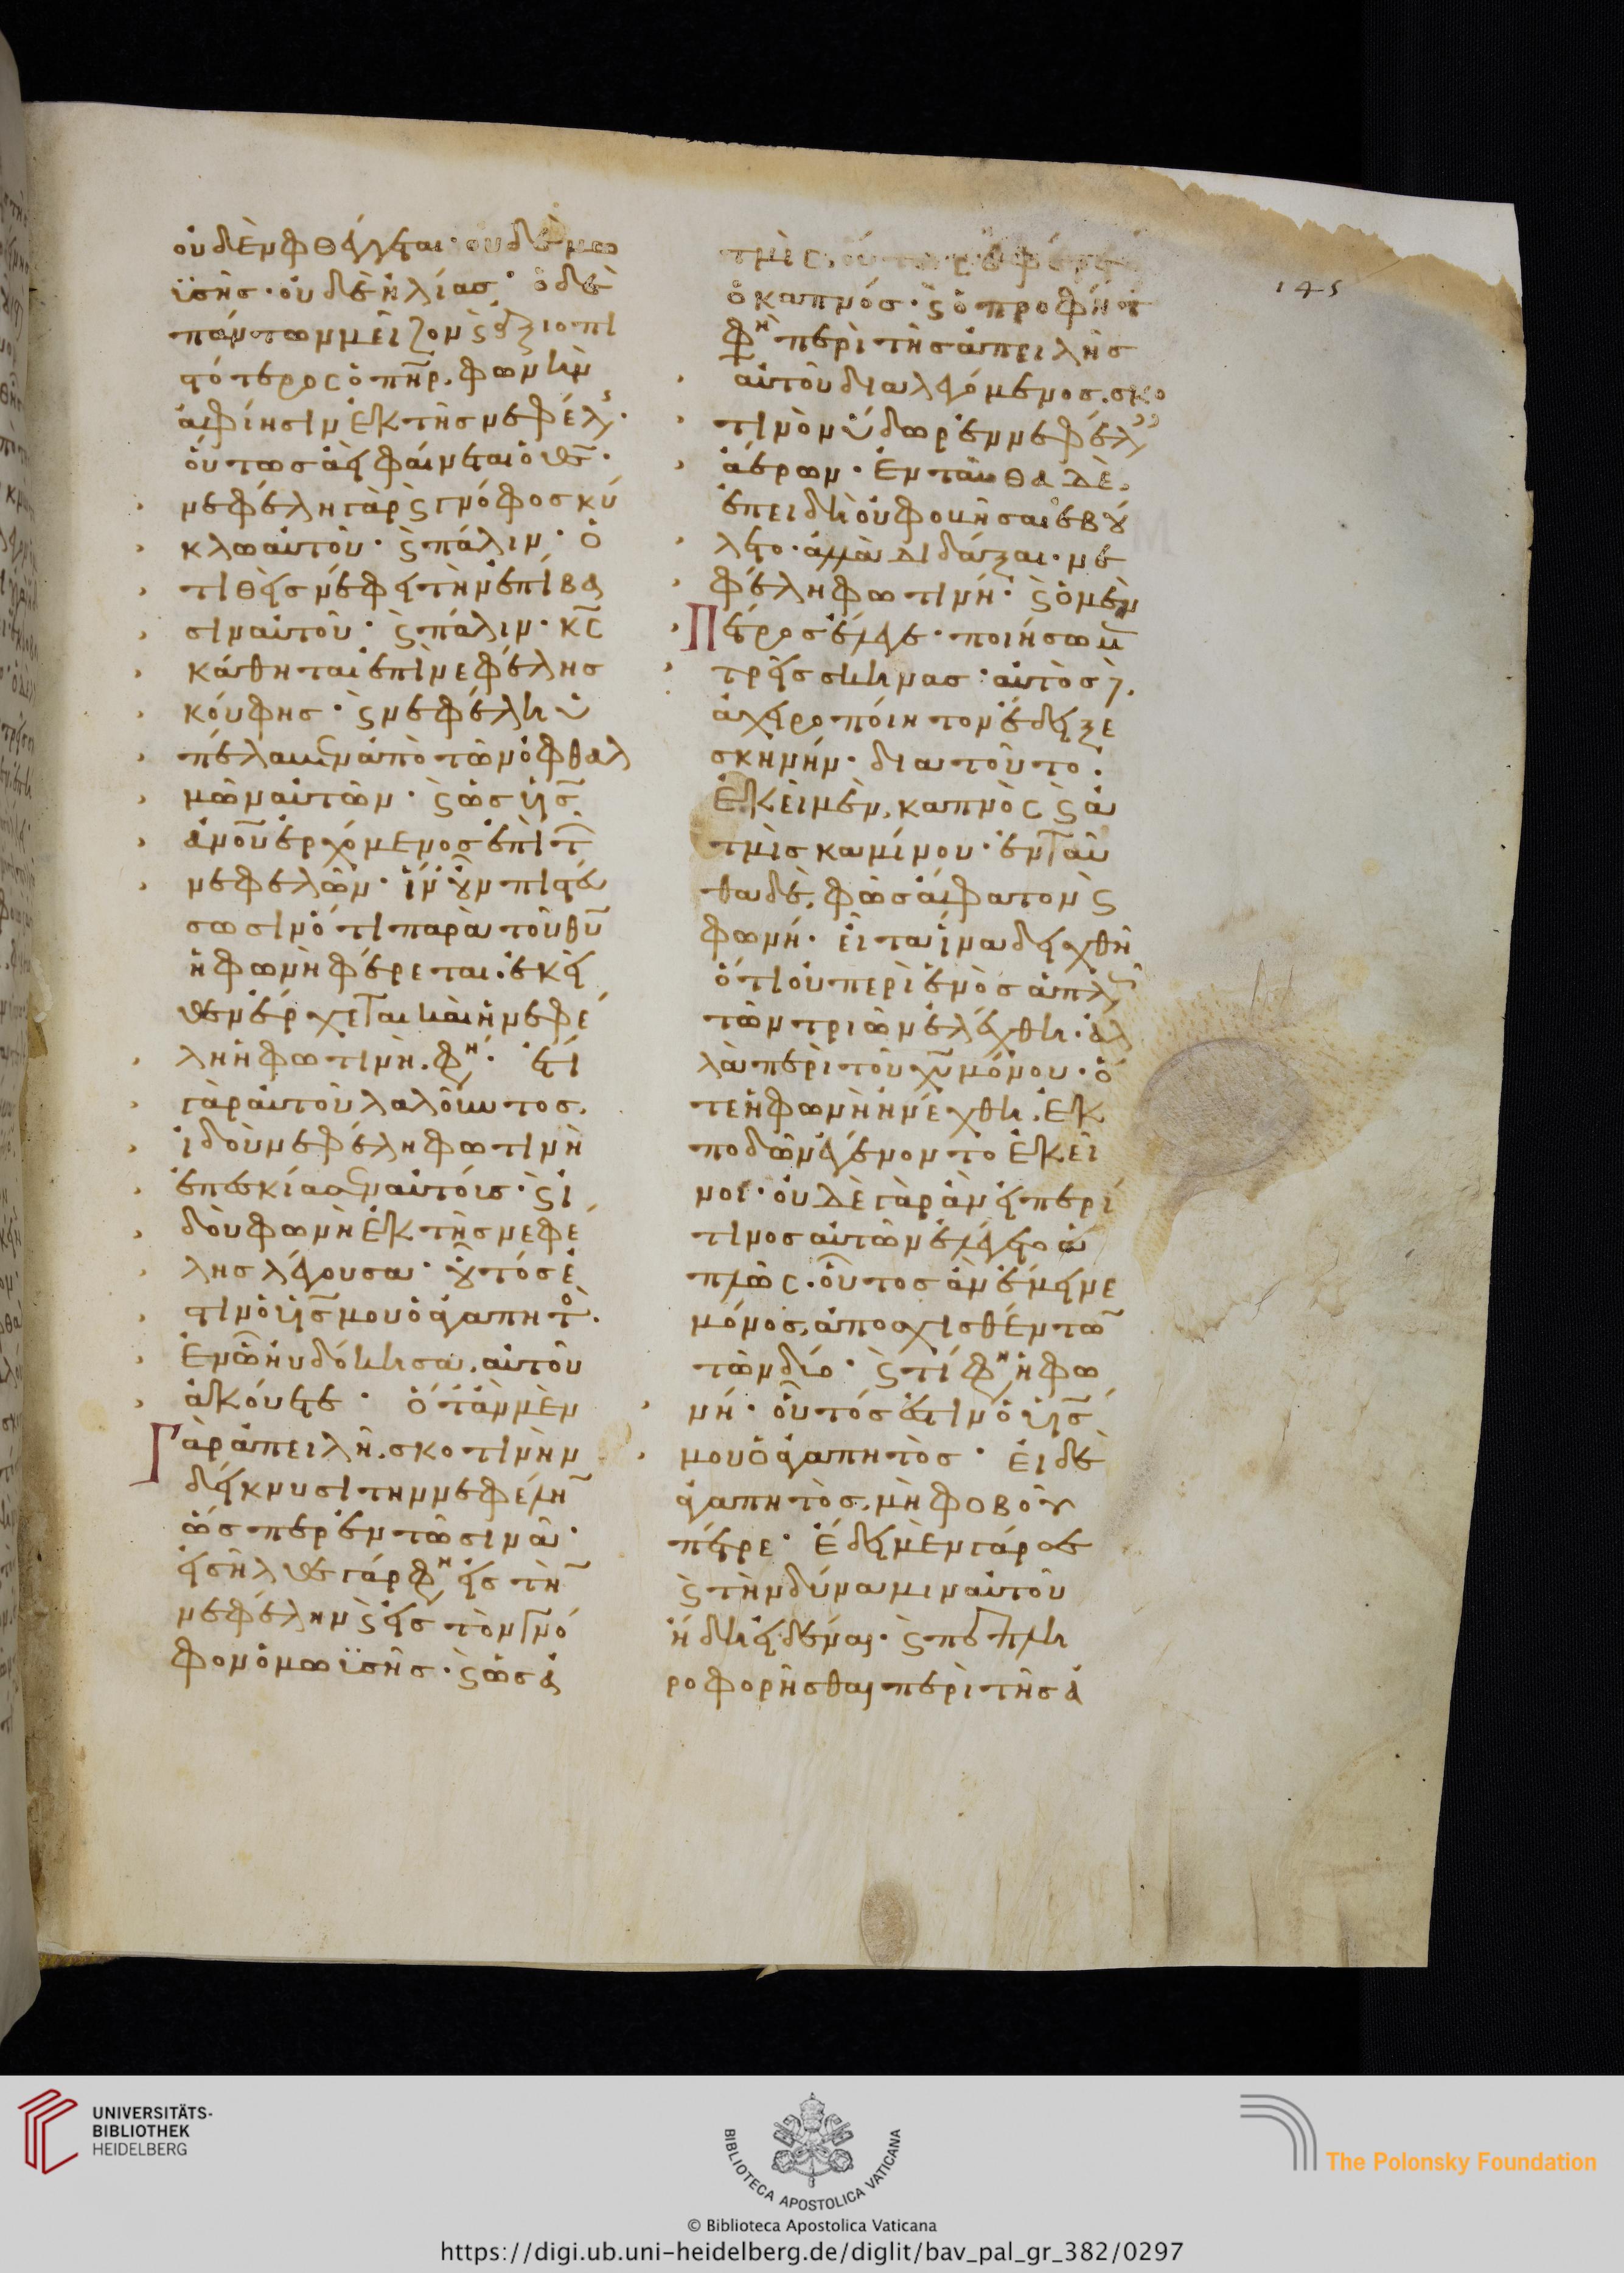 οὐδὲν φθέγγεται· οὐδὲ μω
ϋσῆς· οὐδὲ ἡλίας· ὁ δὲ
πάντων μεῖζον ϛ ἀξιοπι
στότερος ὁ πη̅ρ. φωνὴν
ἀφίησιν ἐκ τῆς νεφέλ·
οὕτως ἀεὶ φαίνεται ὁ θς̅·
νεφέλη γὰρ ϛ γνόφος κύ
κλω αὐτοῦ· ϛ πάλιν· ὁ
τιθεὶς νέφει τὴν ἐπίβα
σιν αὐτοῦ· ϛ πάλιν· κς̅
κάθηται ἐπὶ νεφέλης
κούφης· ϛ νεφέλη ὑ
πέλαβεν ἀπὸ τῶν ὀφθαλ
μῶν αὐτῶν· ϛ ὡς υἱς̅
ἀνου̅ ἐρχόμενος ἐπὶ τ̅
νεφελῶν· ἵν οὖν πιστεύ
σωσιν ὅτι παρὰ τοῦ θυ̅
ἡ φωνὴ φέρεται. ἐκεῖ
θεν ἔρχεται καὶ ἡ νεφέ
λη ἡ φωτινὴ. φη· ἔτι
γὰρ αὐτοῦ λαλοῦντος.
ἰδοὺ νεφέλη φωτινὴ
ἐπεσκίασεν αὐτοῖς· ϛ ἰ
δοὺ φωνὴ ἐκ τῆς νεφέ
λης λέγουσα· οὗτός ἐ
στιν ὁ υἱς̅ μου ὁ ἀγαπητο·
ἐν ὧ ηὐδόκησα, αὐτοῦ
ἀκούετε· ὅταν μὲν
Γὰρ ἀπειλῆ. σκοτινὴν
δείκνυσι την νεφέλη̅
ὥσπερ ἐν τῶ σινᾶ·
εἰσῆλθε γάρ φη εἰς τὴ̅
νεφέλην ϛ εἰς τὸν γνό
φον ὁ μωϋσῆς· ϛ ὡς ἀ
τμὶς, οὕτως ἐφέρετο
ὁ καπνός· ϛ ὁ προφήτ
φη περὶ τῆς ἀπειλῆς
αὐτοῦ διαλεγόμενος. σκο
τινὸν ὕδωρ ἐν νεφέλ
ἀέρων· ἐνταῦθα δὲ,
ἐπειδὴ οὐ φοβῆσαι ἐβού
λετο· ἀλλὰ διδάξαι· νε
φέλη φωτινή· ϛ ὁ μὲν
Πέτρος ἔλεγε· ποιήσωμ̅
τρεῖς σκηνας· αὐτὸς
ἀχειροποίητον ἔδειξε
σκηνήν· δια τοῦτο·
ἐκεῖ μὲν, καπνὸς ϛ ἀ
τμὶς καμίνου· ἐνταῦ
θα δὲ, φῶς ἄφατον ϛ
φωνή· εἶτα ἵνα δειχθῆ
ὅτι οὐ περὶ ἑνὸς ἁπλῶ
τῶν τριῶν ἐλέχθη· ἀλ
λὰ περὶ τοῦ χυ̅ μόνου· ὅ
τε ἡ φωνὴ ἠνέχθη. ἐκ
ποδῶν ἐγένοντο ἐκεῖ
νοι· οὐδὲ γὰρ ἂν εἰ περί
τινος αὐτῶν ἐλέγετο ἁ
πλῶς. οὗτος ἂν ἔμεινε
μόνος, ἀποσχισθέντω̅
τῶν δύο· ϛ τί φη ἡ φω
νή· οὗτός ἐστιν ὁ υἱς̅
μου ὁ ἀγαπητὸς· εἰ δὲ
ἀγαπητὸς, μὴ φοβοῦ
πέτρε· ἔδει μὲν γάρ σε
ϛ τὴν δύναμιν αὐτοῦ
ἤδη εἰδέναι· ϛ πεπλη
ροφορῆσθαι περὶ τῆς ἀ
145
UNIVERSITÄTS-
BIBLIOTHEK
HEIDELBERG
BIBLIOTECA APOSTOLICA VATICANA
The Polonsky Foundation
© Biblioteca Apostolica Vaticana
https://digi.ub.uni-heidelberg.de/diglit/bav_pal_gr_382/0297